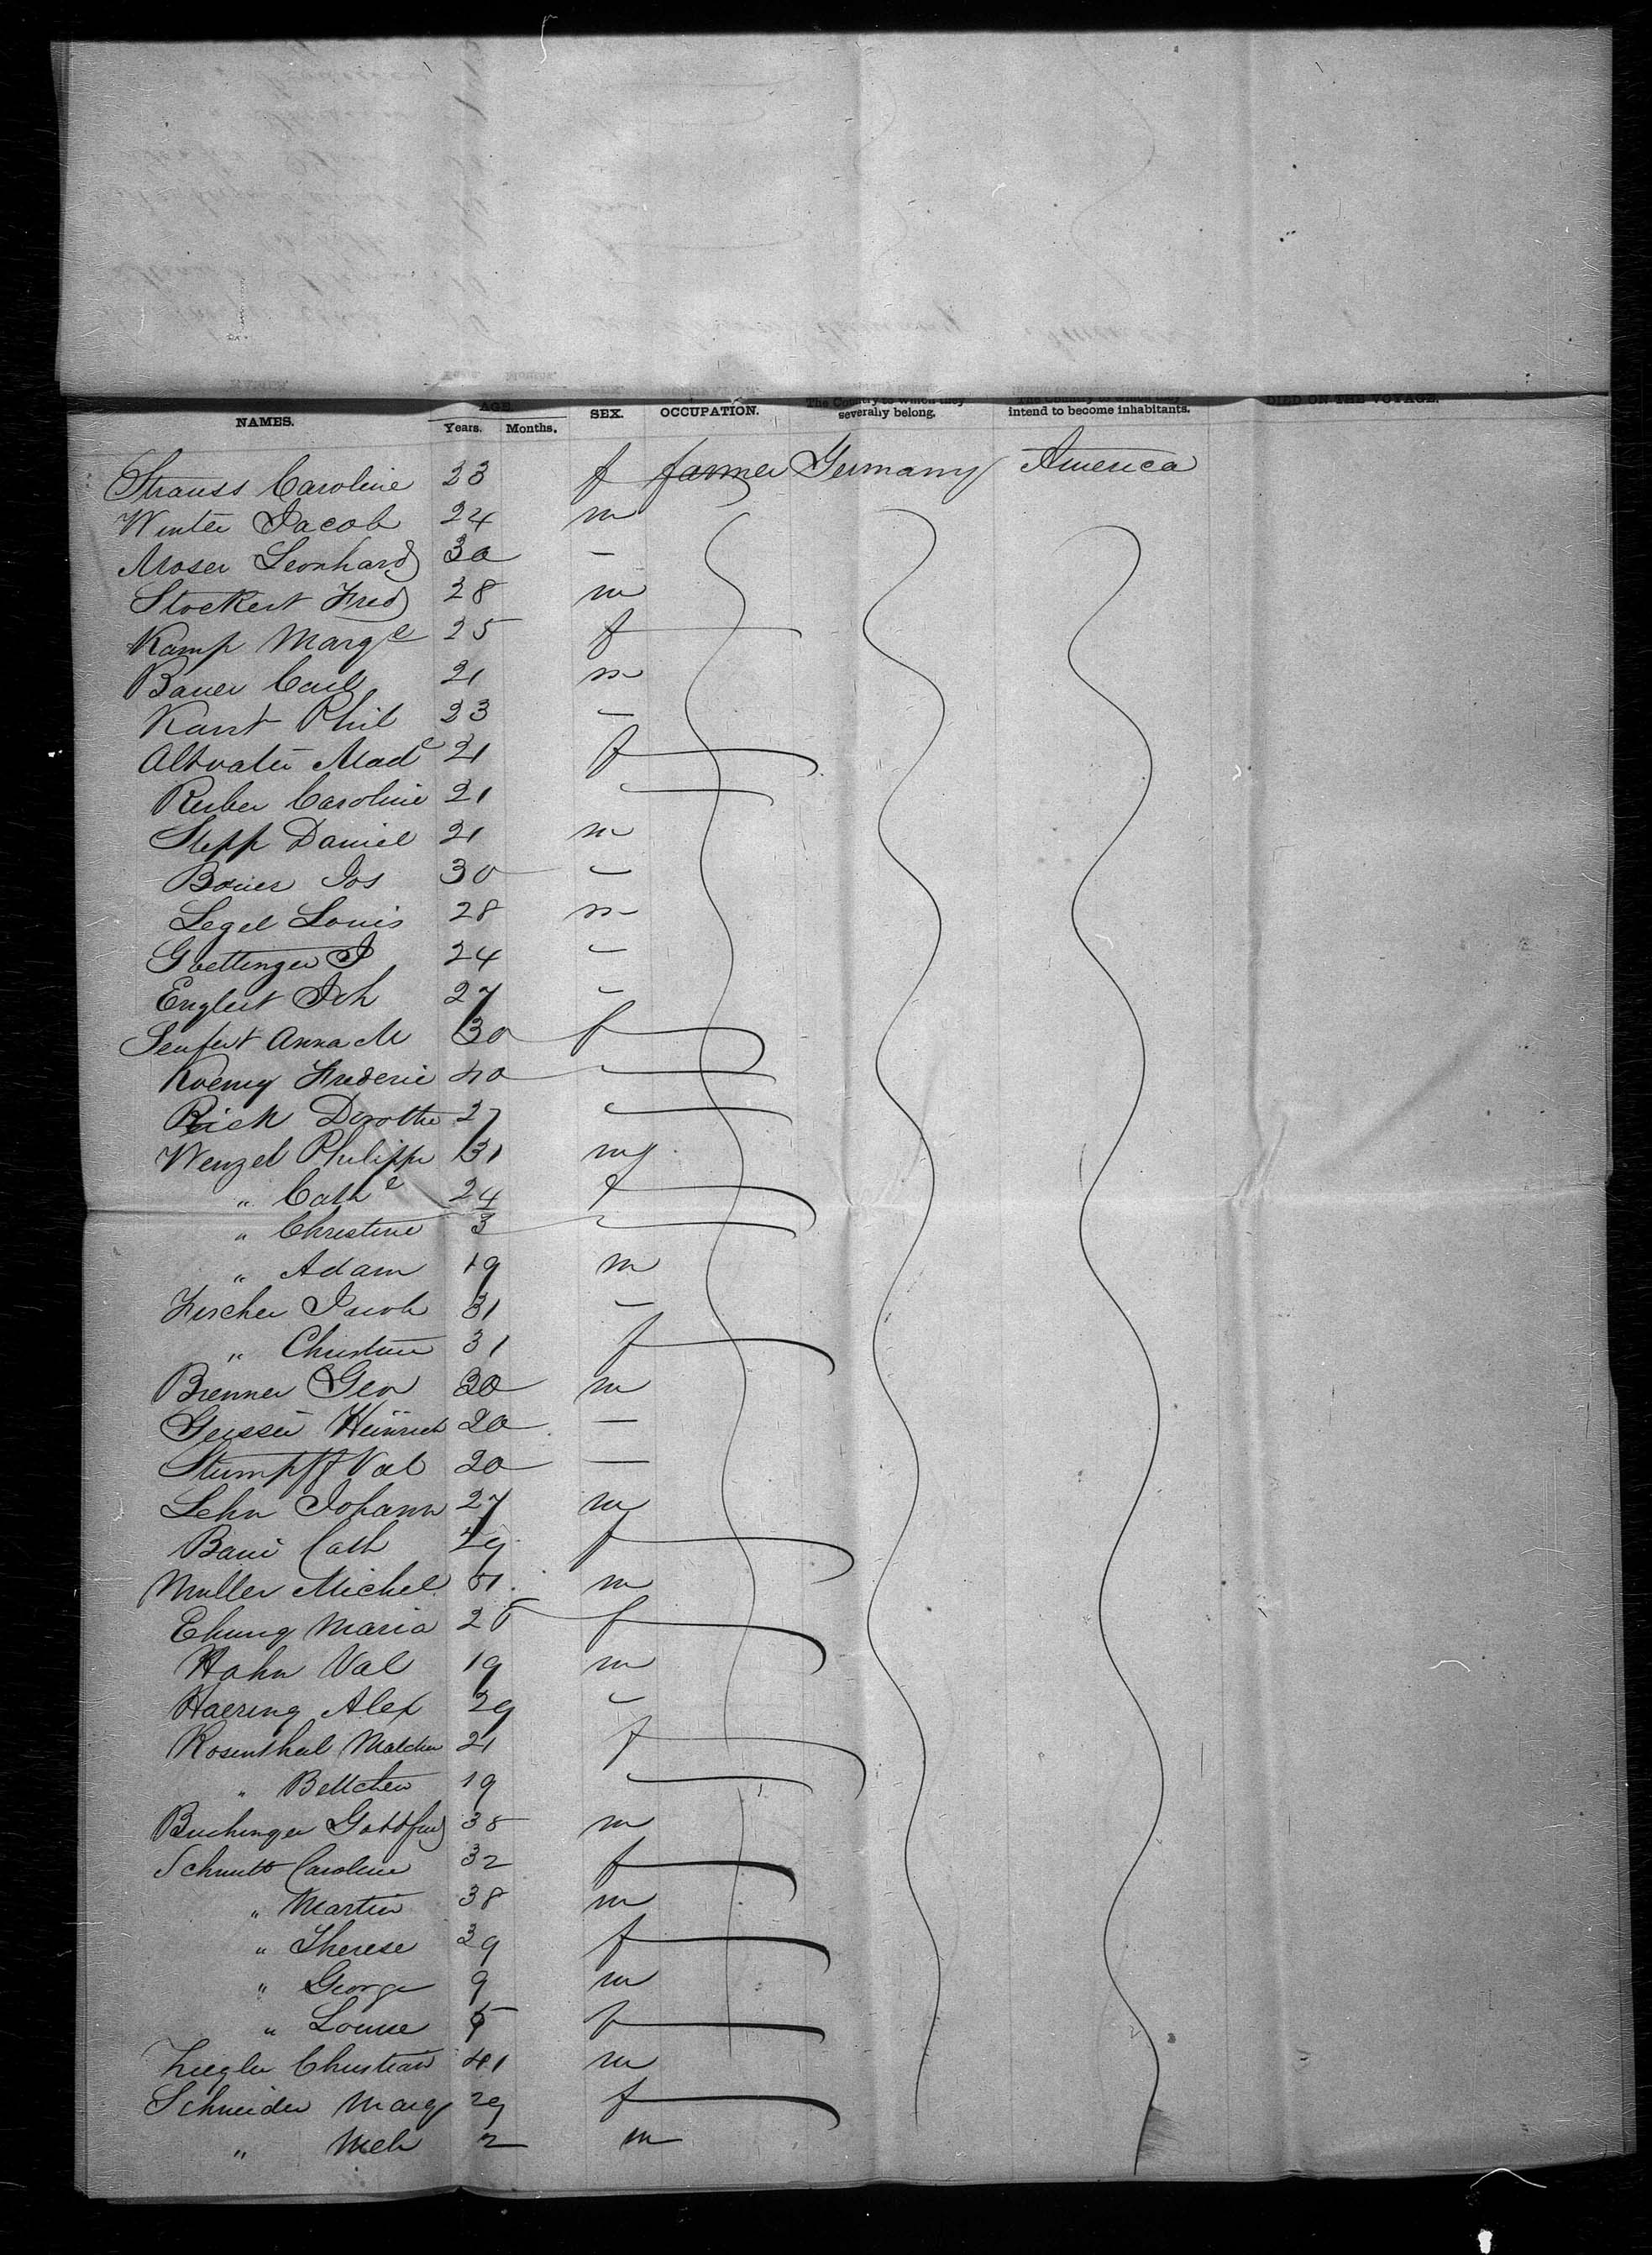 NAMES. AGE. Years. Months. SEX. OCCUPATION. The Country to which they severally belong. The Country to which they intend to become inhabitants. DIED ON THE VOYAGE.
Strauss Caroline 23 f farmer Germany America
Winter Jacob 24 m
Moser Leonhard 30 —
Stockert Fred 28 m
Kamp Marge 25 f
Bauer Carl 21 m
Kant Phil 23 —
Altvater Made 21 f
Reiber Caroline 21
Stepp Daniel 21 m
Boier Jos 30 —
Legel Louis 28 m
Goettinger J 24 —
Englert Joh 27 —
Seufert Anna M 30 f
Koenig Frederic 40
Rick Dorothe 27
Wenzel Philipp 31 m
" Cathe 24 f
" Christine 3
" Adam 19 m
Fischer Jacob 31 —
" Christine 31 f
Brenner Geo 30 m
Geisser Heinrich 20 —
Stumpff Val 20 —
Lehn Johann 27 m
Cath f
Muller Michel 51 m
Maria 25 f
Hahn Val 19 m
Haering Alex 29 —
Rosenthal Malchen 21 f
" Bettchen 19
Buchinger Gottfried 38 m
Schmitt Caroline 32 f
" Martin 38 m
" Therese 39 f
" George 9 m
" Louise f
Ziegler Christian 41 m
Schneider Marg 29 f
" Mch 2 m